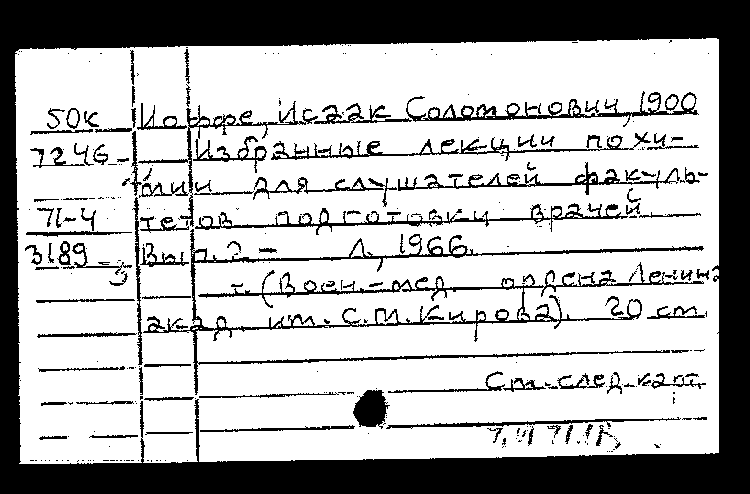 50к Иоффе, Исаак Соломонович, 1900
7246- Избранные лекции по хи-
мии для слушателей факуль-
71-4 тетов подготовки врачей.
3189-3 Вып. 2.- Л., 1966.
т. (Воен.-мед. ордена Ленина
акад. им. С.М. Кирова). 20 см.
См. след. карт.